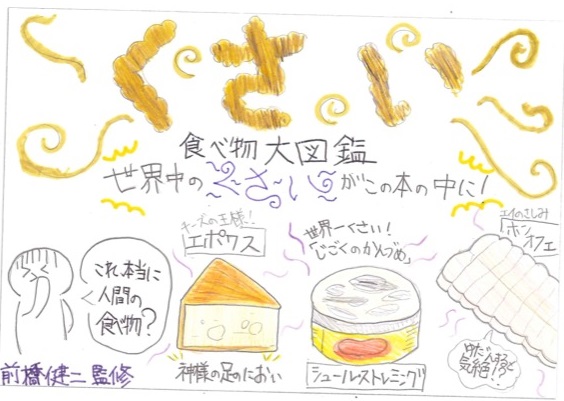 くさい
食べ物大図鑑
世界中のくさいがこの本の中に!
これ本当に
人間の
食べ物?
チーズの王様!
エポワス
神様の足のにおい
世界一くさい!
「じごくのかんづめ」
シュールストレミング
エイのさしみ
ホンオフェ
ゆだんすると
気絶!?
前橋健二監修